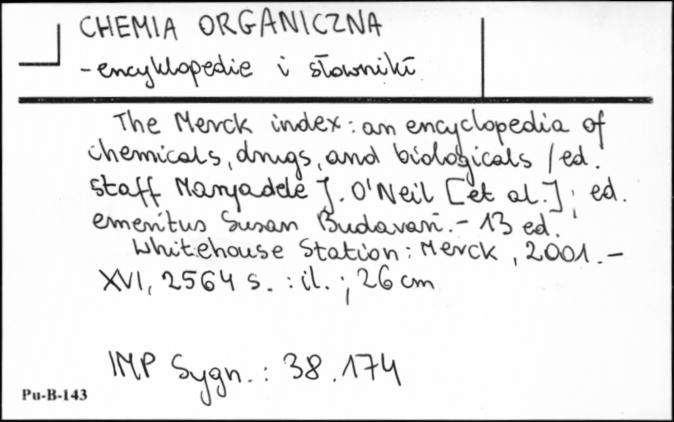 CHEMIA ORGANICZNA
- encyklopedie i słowniki
The Merck index : an encyclopedia of
chemicals, drugs, and biologicals / ed.
staff Maryadele J. O'Neil [et al.] ; ed.
emeritus Susan Budavari. - 13 ed.
Whitehouse Station : Merck, 2001. -
XVI, 2564 s. : il. ; 26 cm
IMP Sygn. : 38.174
Pu-B-143